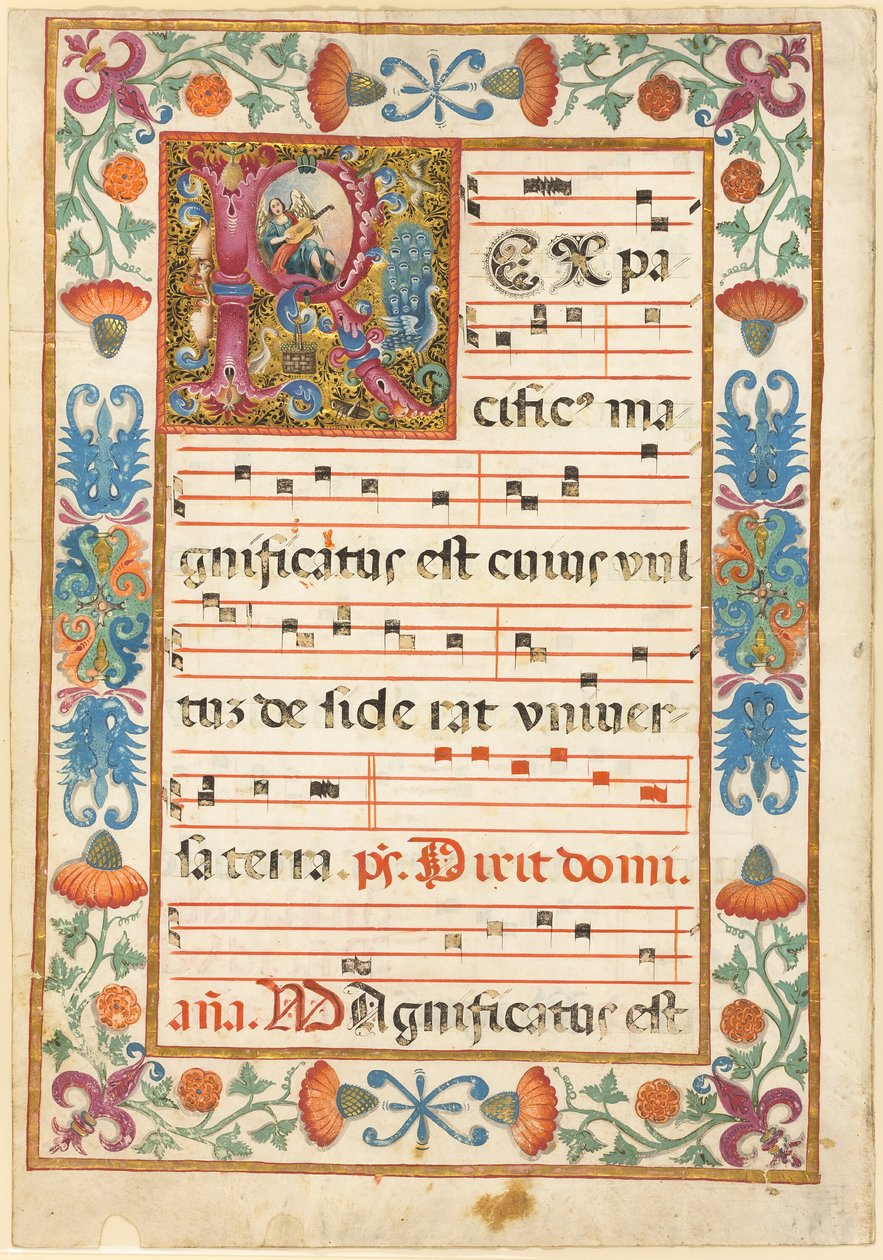 REX pa-
cific⁹ ma-
gnificatus est cuius vul
tuʒ de side rat vniuer-
sa terra. ps. Dixit domi.
aña. MAgnificatus est